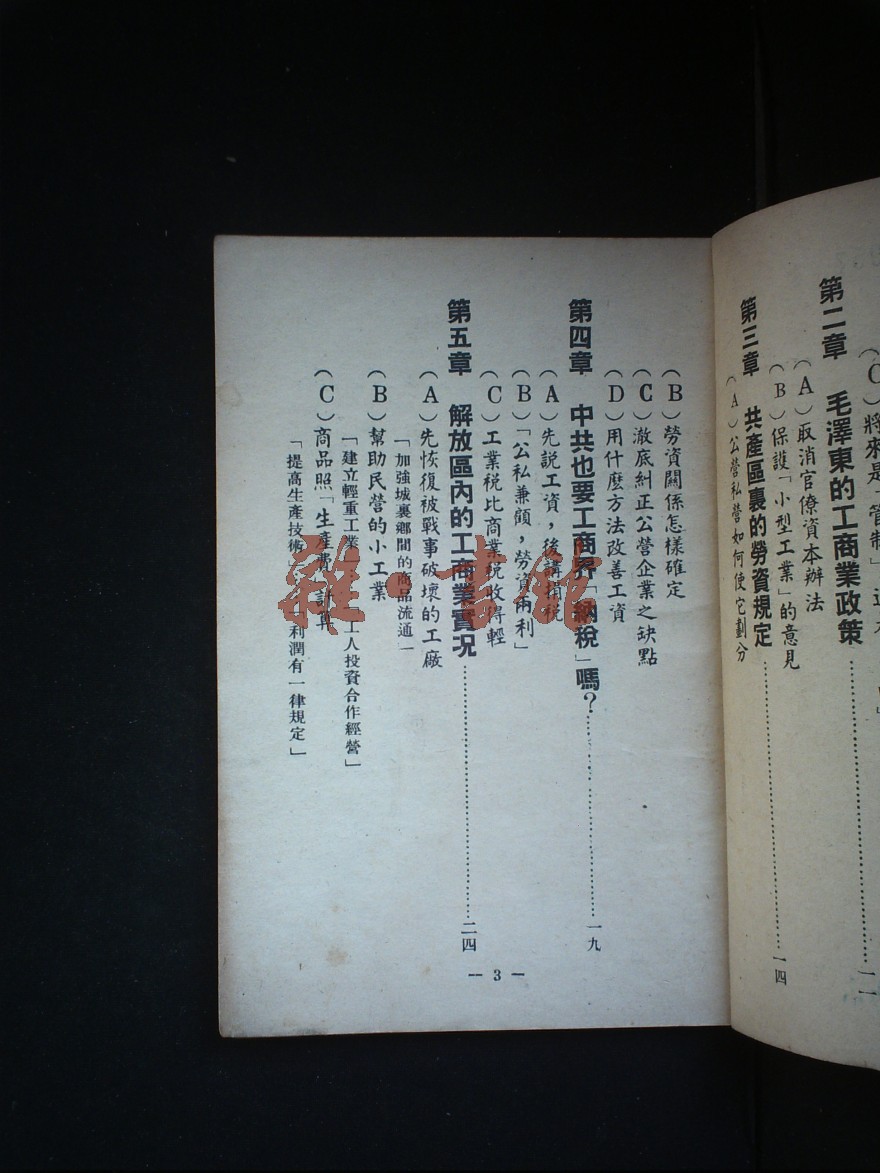 (C)將來是「管制」
第二章 毛澤東的工商業政策……一一
(A)取消官僚資本辦法
(B)保護「小型工業」的意見
第三章 共產區裏的勞資規定……一四
(A)公營私營如何使它劃分
(B)勞資關係怎樣確定
(C)澈底糾正公營企業之缺點
(D)用什麽方法改善工資
第四章 中共也要工商界「納稅」嗎?……一九
(A)先説工資,後講捐税
(B)「公私兼顧,勞資兩利」
(C)工業税比商業税收得輕
第五章 解放區內的工商業實况……二四
(A)先恢復被戰事破壞的工廠
「加強城裏鄉間的商品流通」
(B)幫助民營的小工業
「建立輕重工業 工人投資合作經營」
(C)商品照「生產費」計算
「提高生產技術 利潤有一律規定」
— 3 —
雜書館